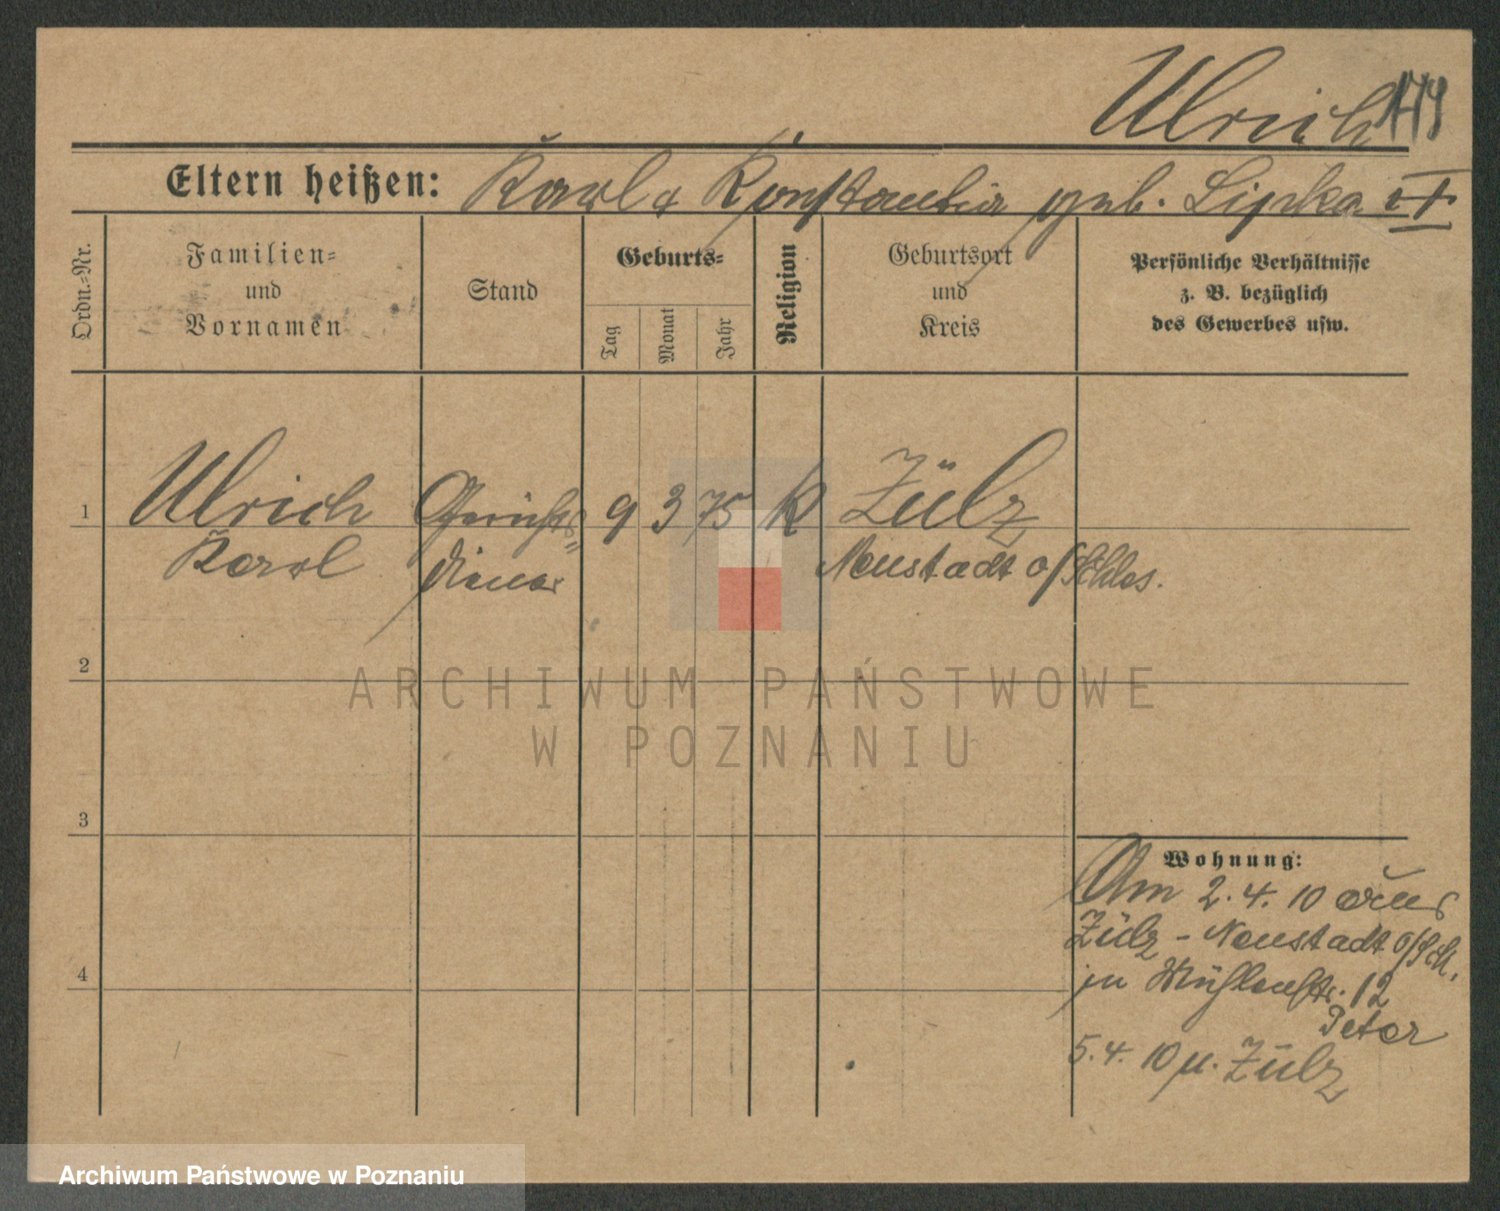 Ulrich 179
Eltern heißen: Karl & Konstantin geb. Lipka
Ordn.-Nr.
Familien-
und
Vornamen
Stand
Geburts-
Tag
Monat
Jahr
Religion
Geburtsort
und
Kreis
Persönliche Verhältnisse
z. B. bezüglich
des Gewerbes usw.
1 Ulrich Gerichts= 9 3 75 K Zülz
Karl diener Neustadt o/Schles.
2
3
4
Wohnung:
Am 2.4.10 aus
Zülz - Neustadt O/Sch.
in Mühlenstr. 12
Peter
5.4.10 n. Zülz
ARCHIWUM PAŃSTWOWE
W POZNANIU
Archiwum Państwowe w Poznaniu